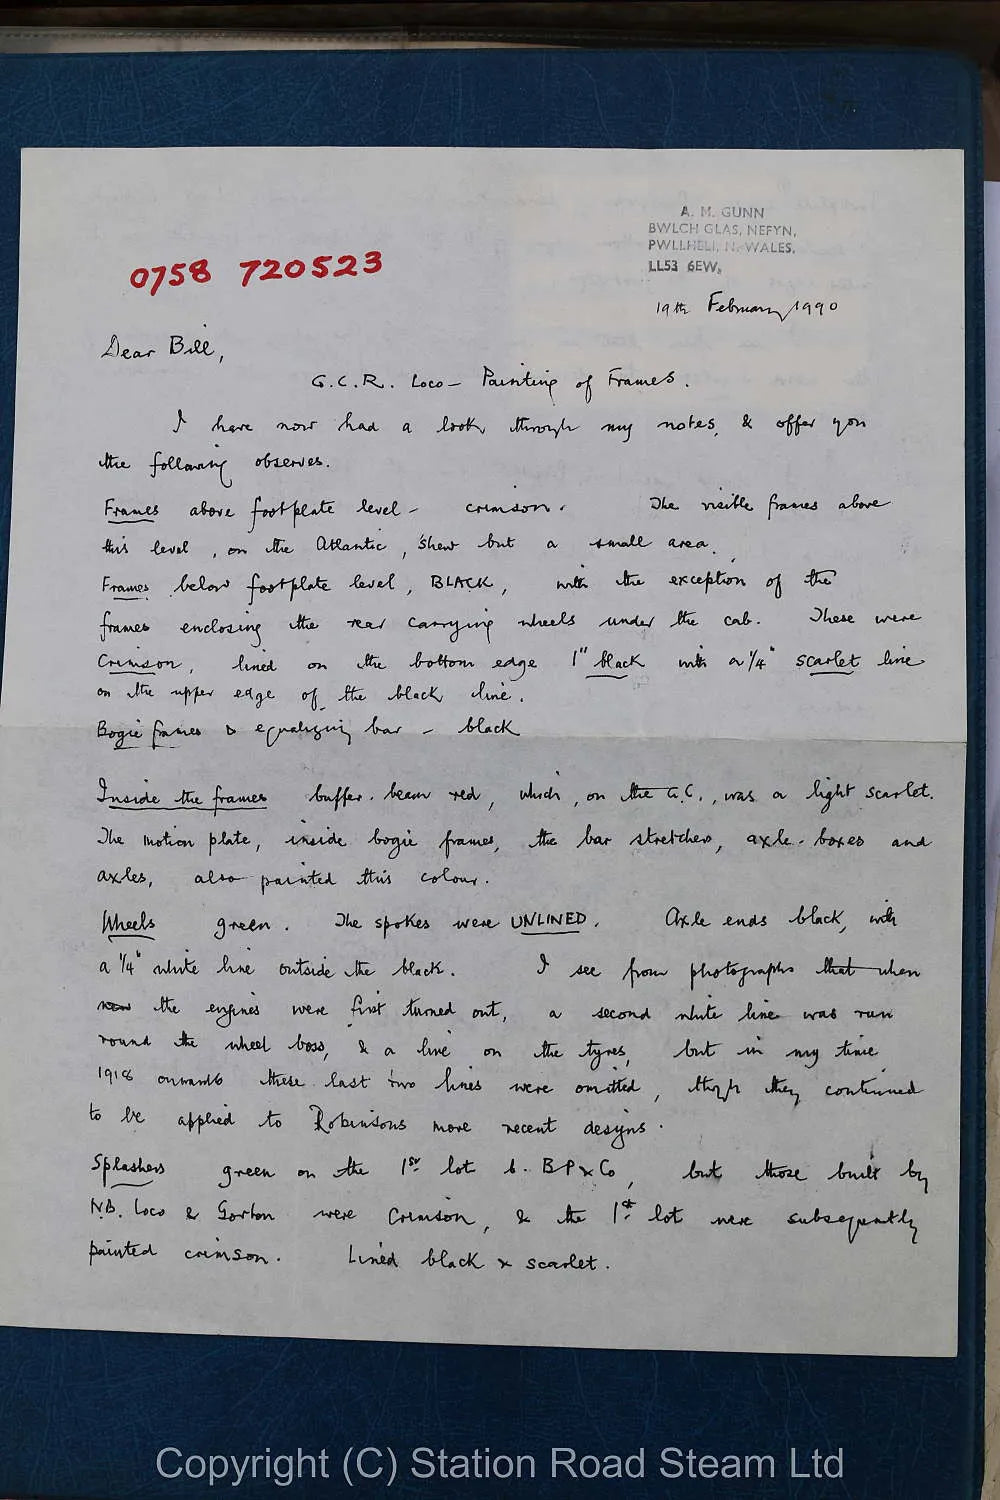 A. M. GUNN
BWLCH GLAS, NEFYN,
PWLLHELI, N. WALES.
LL53 6EW.
0758 720523
19th February 1990
Dear Bill,
G.C.R. Loco – Painting of Frames.
I have now had a look through my notes, & offer you
the following observes.
Frames above footplate level – crimson. The visible frames above
this level, on the Atlantic, shew but a small area.
Frames below footplate level, BLACK, with the exception of the
frames enclosing the rear carrying wheels under the cab. These were
Crimson, lined on the bottom edge 1" black with a 1/4" scarlet line
on the upper edge of the black line.
Bogie frames & equalising bar – black
Inside the frames buffer-beam red, which, on the G.C., was a light scarlet.
The motion plate, inside bogie frames, the bar stretchers, axle-boxes and
axles, also painted this colour.
Wheels green. The spokes were UNLINED. Axle ends black, with
a 1/4" white line outside the black. I see from photographs that when
the engines were first turned out, a second white line was run
round the wheel boss, & a line on the tyres, but in my time
1918 onwards these last two lines were omitted, though they continued
to be applied to Robinsons more recent designs.
Splashers green on the 1st lot b. BP & Co, but those built by
N.B. Loco & Gorton were Crimson, & the 1st lot were subsequently
painted crimson. Lined black & scarlet.
Copyright (C) Station Road Steam Ltd